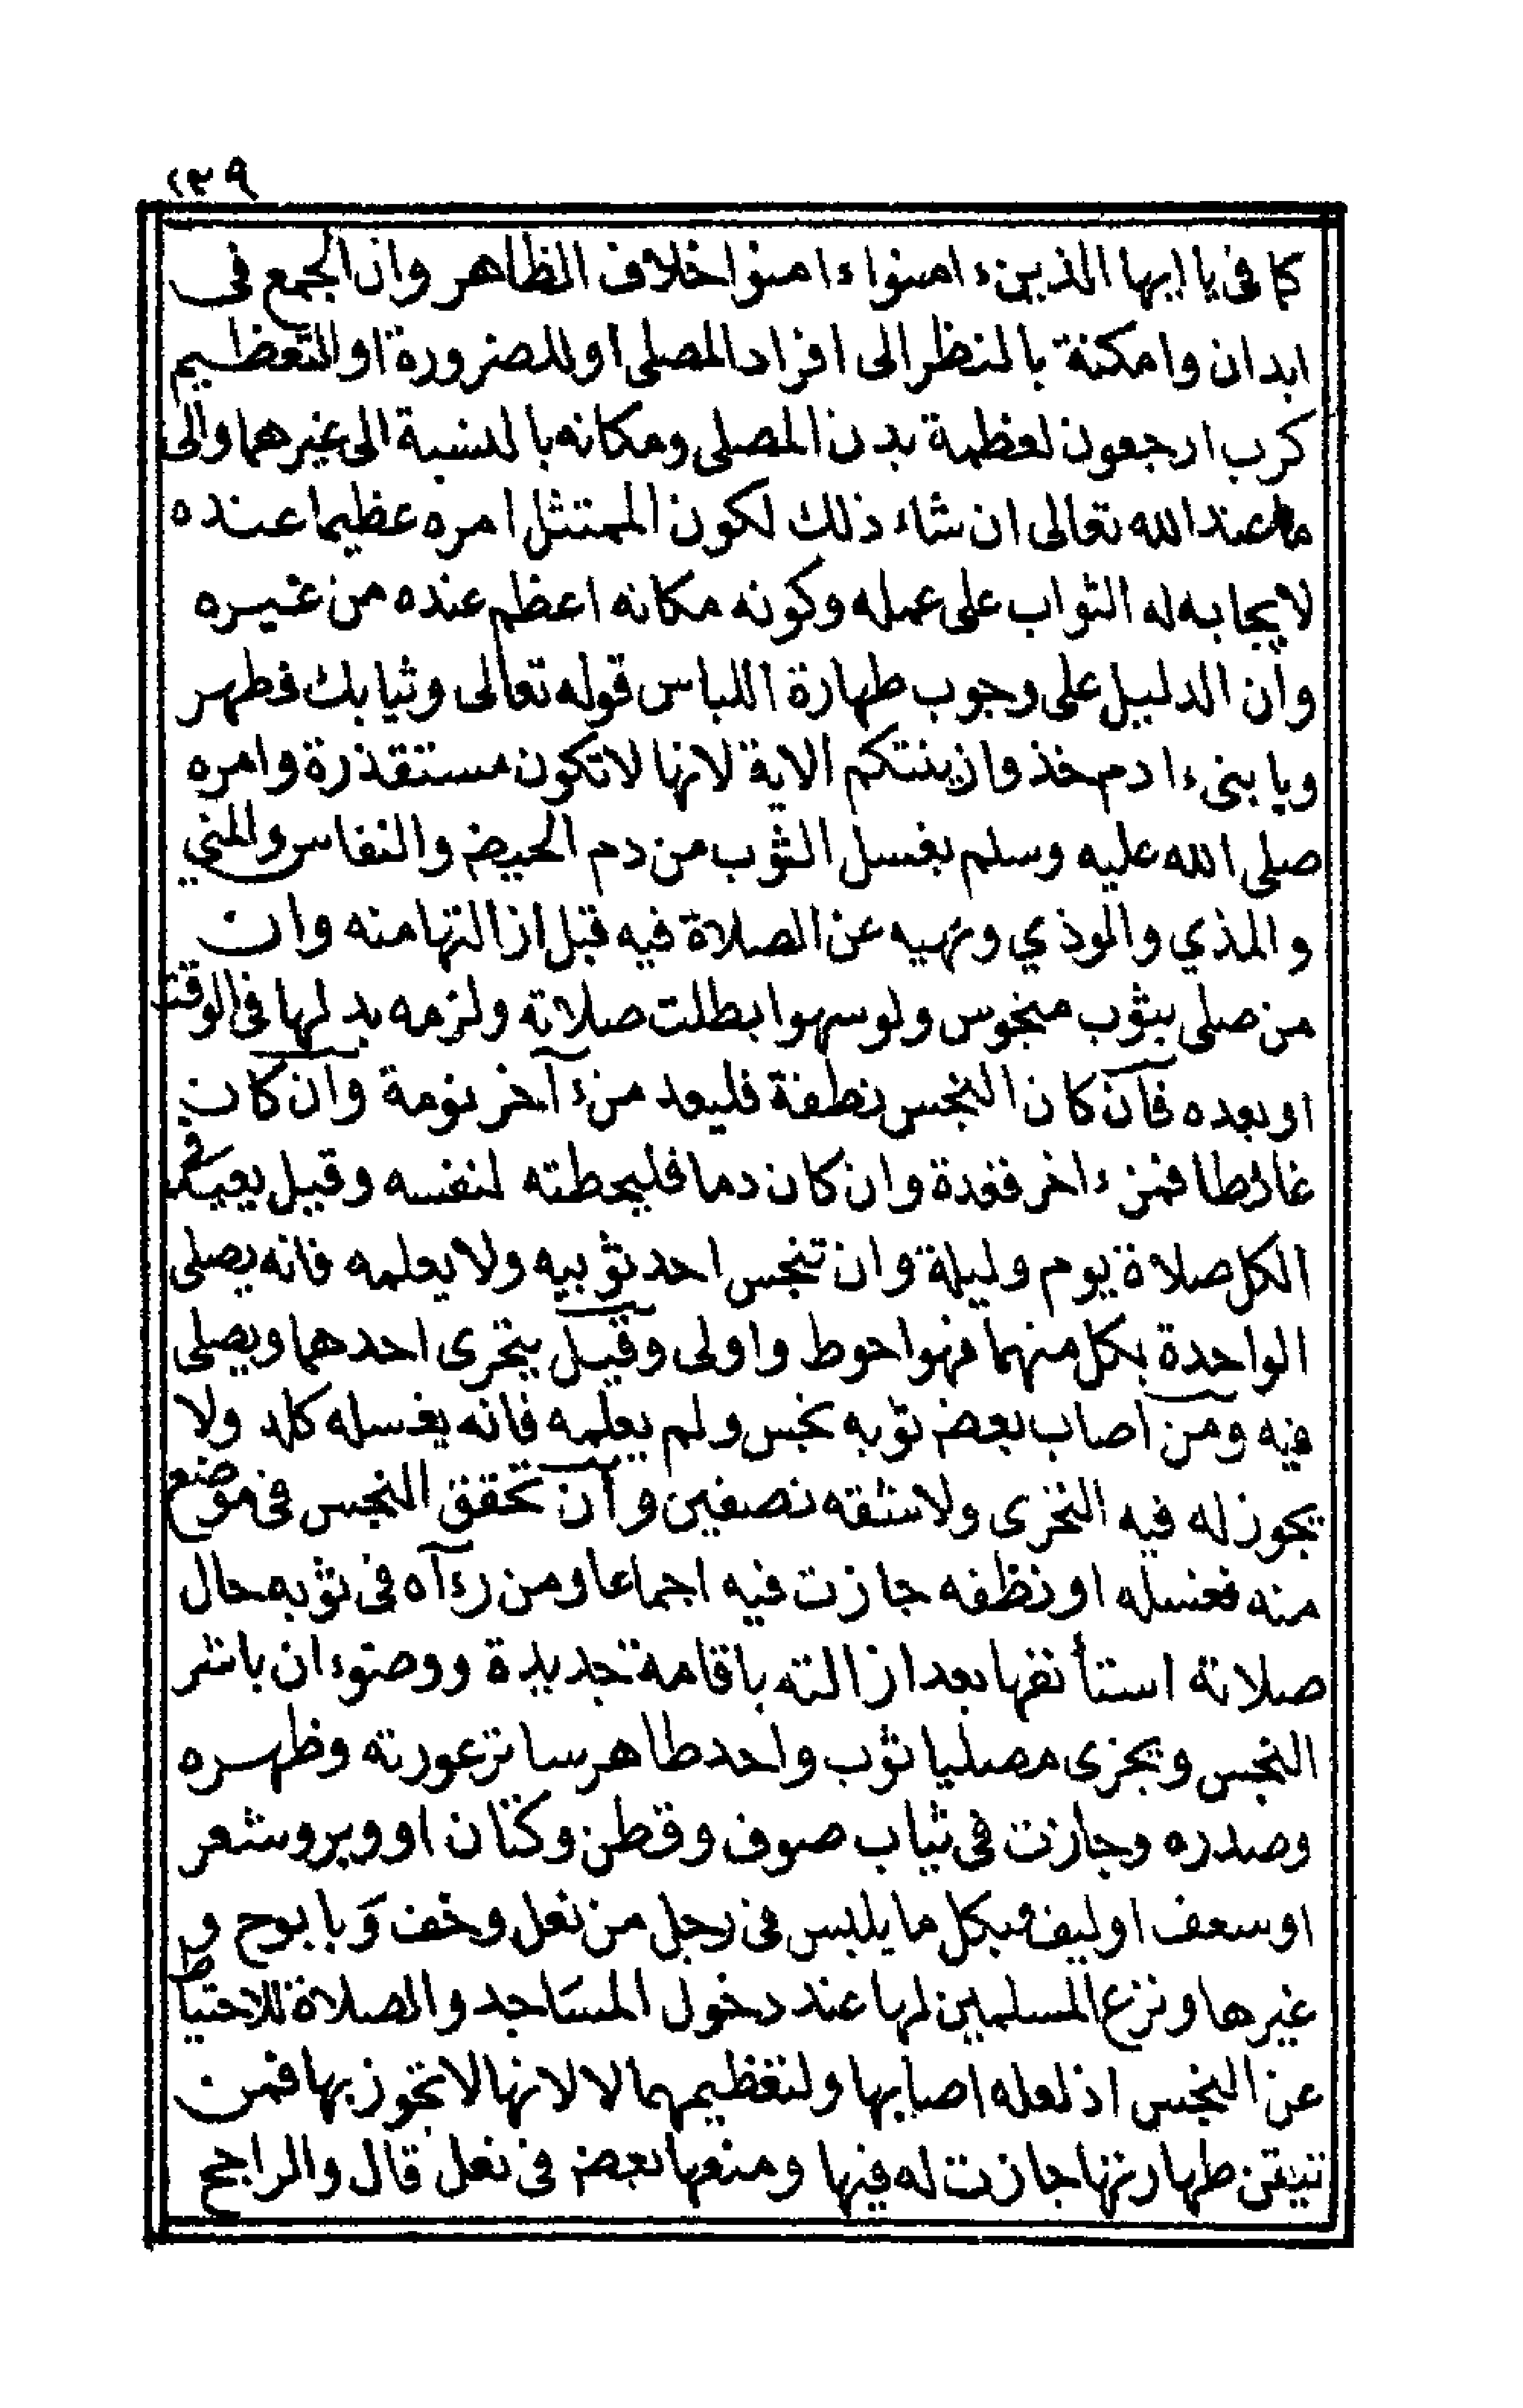 ١٣٩
كما فى يا ايها الذين ءامنوا ءامنوا خلاف الظاهر وان الجمع فى
ابدان وامكنة بالنظر الى افراد المصلى او للضرورة او التعظيم
كرب ارجعون لعظمة بدن المصلى ومكانه بالنسبة الى غيرهما والى
ما عند الله تعالى ان شاء ذلك لكون الممتثل امره عظيما عنده
لايجابه له الثواب على عمله وكونه مكانه اعظم عنده من غيره
وان الدليل على وجوب طهارة اللباس قوله تعالى وثيابك فطهر
ويا بنى ءادم خذوا زينتكم الاية لانها لا تكون مستقذرة وامره
صلى الله عليه وسلم بغسل الثوب من دم الحيض والنفاس والمني
والمذي والوذي ونهيه عن الصلاة فيه قبل ازالتها منه وان
من صلى بثوب منجوس ولو سهوا بطلت صلاته ولزمه بدلها فى الوقت
او بعده فان كان النجس نطفة فليعد من ءآخر نومة وان كان
غائطا فمن ءاخر قعدة وان كان دما فليحطته لنفسه وقيل يعيد فى
الكل صلاة يوم وليلة وان تنجس احد ثوبيه ولا يعلمه فانه يصلى
الواحدة بكل منهما فهو احوط واولى وقيل يتحرى احدهما ويصلى
فيه ومن اصاب بعض ثوبه نجس ولم يعلمه فانه يغسله كله ولا
يجوز له فيه التحرى ولا شقه نصفين وان تحقق النجس فى موضع
منه فغسله او نظفه جازت فيه اجماعا ومن رءآه فى ثوبه حال
صلاته استأنفها بعد ازالته باقامة جديدة ووضوء ان باشر
النجس ويجزى مصليا ثوب واحد طاهر ساتر عورته وظهره
وصدره وجازت فى ثياب صوف وقطن وكتان او وبر وشعر
او سعف او ليف وبكل ما يلبس فى رجل من نعل وخف وبابوح و
غيرها ونزع المسلمين لها عند دخول المساجد والصلاة للاحتياط
عن النجس اذ لعله اصابها ولتعظيمهما لا لانها لا تجوز بها فمن
تيقن طهارتها جازت له فيها ومنعها بعض فى نعل قال والراجح